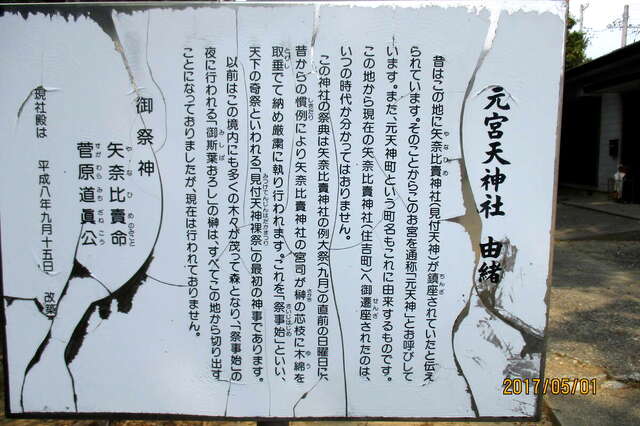 元宮天神社 由緒
昔はこの地に矢奈比賣神社(見付天神)が鎮座されていたと伝え
られています。そのことからこのお宮を通称「元天神」とお呼びして
います。また、元天神町という町名もこれに由来するものです。
この地から現在の矢奈比賣神社(住吉町)へ御遷座されたのは、
いつの時代か分かってはおりません。
この神社の祭典は矢奈比賣神社の例大祭(九月)の直前の日曜日に、
昔からの慣例により矢奈比賣神社の宮司が榊の芯枝に木綿を
取垂でて納め厳粛に執り行われます。これを「祭事始」といい、
天下の奇祭といわれる「見付天神裸祭」の最初の神事であります。
以前はこの境内にも多くの木々が茂って森となり、「祭事始」の
夜に行われる「御斯葉おろし」の榊は、すべてこの地から切り出す
ことになっておりましたが、現在は行われておりません。
御祭神
矢奈比賣命
菅原道眞公
現社殿は 平成八年九月十五日 改築
2017/05/01